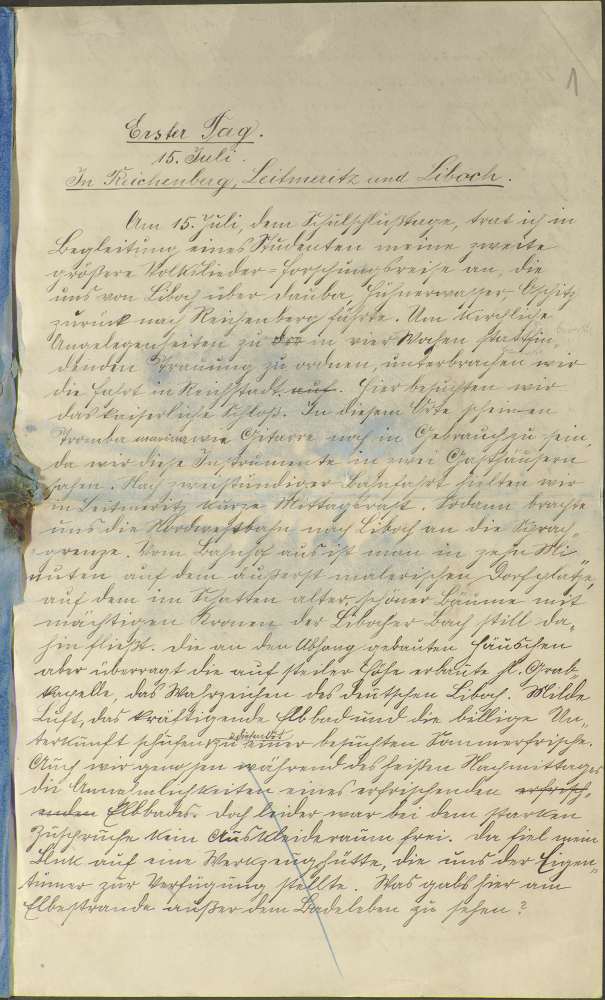 1
Erster Tag.
15. Juli.
In Reichenberg, Leitmeritz und Liboch.
Am 15. Juli, dem Schulschlußtage, trat ich in
Begleitung eines Studenten meine zweite
größere Volkslieder=Forschungsreise an, die
uns von Liboch über Dauba, Hühnerwasser, Oschitz
zurück nach Reichenberg führte. Um kirchliche
Angelegenheiten zu der in vier Wochen stattfin-
denden Trauung zu ordnen, unterbrachen wir
die Fahrt in Reichstadt auf. Hier besuchten wir
das kaiserliche Schloß. In diesem Orte scheinen
Tromba marina wie Gitarre noch in Gebrauch zu sein,
da wir diese Instrumente in zwei Gasthäusern
sahen. Nach zweistündiger Bahnfahrt hielten wir
in Leitmeritz kurze Mittagsrast. Sodann brachte
uns die Nordwestbahn nach Liboch an die Sprach-
grenze. Vom Bahnhof aus ist man in zehn Mi-
nuten auf dem äußerst malerischen Dorfplatze,
auf dem im Schatten alter, schöner Bäume mit
mächtigen Kronen der Libocher Bach still da-
hin fließt. Die an den Abhang gebauten Häuschen
aber überragt die auf steiler Höhe erbaute hl. Grab-
kapelle, das Wahrzeichen des deutschen Liboch. Milde
Luft, das kräftigende Elbbad und die billige Un-
terkunft schufen zu einer besuchten Sommerfrische.
Auch wir genossen während des heißen Nachmittages
die Annehmlichkeiten eines erfrischenden erfrisch-
enden Elbbades. Doch leider war bei dem starken
Zuspruche kein Auskleideraum frei. Da fiel mein
Blick auf eine Werkzeughütte, die uns der Eigen-
tümer zur Verfügung stellte. Was gab's hier am
Elbestrande außer dem Badeleben zu sehen?